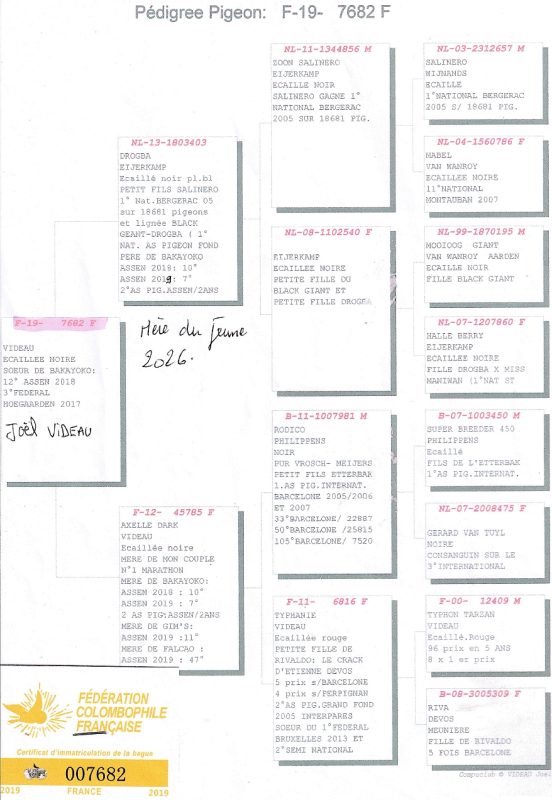 Pédigree Pigeon: F-19- 7682 F
F-19- 7682 F
VIDEAU
ECAILLEE NOIRE
SOEUR DE BAKAYOKO:
12° ASSEN 2018
3°FEDERAL
HOEGAARDEN 2017
Joël VIDEAU
Mère du jeune
2026.
NL-13-1803403
DROGBA
EIJERKAMP
Ecaillé noir pl.bl
PETIT FILS SALINERO
1° Nat.BERGERAC 05
sur 18681 pigeons
et lignée BLACK
GEANT-DROGBA ( 1°
NAT. AS PIGEON FOND
PERE DE BAKAYOKO
ASSEN 2018: 10°
ASSEN 2019: 7°
2°AS PIG.ASSEN/2ANS
F-12- 45785 F
AXELLE DARK
VIDEAU
Ecaillée noire
MERE DE MON COUPLE
N°1 MARATHON
MERE DE BAKAYOKO:
ASSEN 2018 : 10°
ASSEN 2019 : 7°
2 AS PIG:ASSEN/2ANS
MERE DE GIM'S:
ASSEN 2019 :11°
MERE DE FALCAO :
ASSEN 2019 : 47°
NL-11-1344856 M
ZOON SALINERO
EIJERKAMP
ECAILLE NOIR
SALINERO GAGNE 1°
NATIONAL BERGERAC
2005 SUR 18681 PIG.
NL-08-1102540 F
EIJERKAMP
ECAILLEE NOIRE
PETITE FILLE DU
BLACK GIANT ET
PETITE FILLE DROGBA
B-11-1007981 M
RODICO
PHILIPPENS
NOIR
PUR VROSCH- MEIJERS
PETIT FILS ETTERBAK
1.AS PIG.INTERNAT.
BARCELONE 2005/2006
ET 2007
33°BARCELONE/ 22887
50°BARCELONE /25815
105°BARCELONE/ 7520
F-11- 6816 F
TYPHANIE
VIDEAU
Ecaillée rouge
PETITE FILLE DE
RIVALDO: LE CRACK
D'ETIENNE DEVOS
5 prix s/BARCELONE
4 prix s/PERPIGNAN
2°AS PIG.GRAND FOND
2005 INTERPARES
SOEUR DU 1°FEDERAL
BRUXELLES 2013 ET
2°SEMI NATIONAL
NL-03-2312657 M
SALINERO
WIJNANDS
ECAILLE
1°NATIONAL BERGERAC
2005 S/ 18681 PIG.
NL-04-1560786 F
MABEL
VAN WANROY
ECAILLEE NOIRE
11°NATIONAL
MONTAUBAN 2007
NL-99-1870195 M
MOOIOOG GIANT
VAN WANROY AARDEN
ECAILLE NOIR
FILLE BLACK GIANT
NL-07-1207860 F
HALLE BERRY
EIJERKAMP
ECAILLEE NOIRE
FILLE DROGBA X MISS
MANIWAN (1°NAT ST
B-07-1003450 M
SUPER BREEDER 450
PHILIPPENS
Ecaillé
FILS DE L'ETTERBAK
1°AS PIG.INTERNAT.
NL-07-2008475 F
GERARD VAN TUYL
NOIRE
CONSANGUIN SUR LE
3°INTERNATIONAL
F-00- 12409 M
TYPHON TARZAN
VIDEAU
Ecaillé.Rouge
96 prix en 5 ANS
8 x 1 er prix
B-08-3005309 F
RIVA
DEVOS
MEUNIERE
FILLE DE RIVALDO
5 FOIS BARCELONE
Compuclub © VIDEAU Joel
FÉDÉRATION
COLOMBOPHILE
FRANÇAISE
Certificat d'immatriculation de la bague
007682
2019 FRANCE 2019